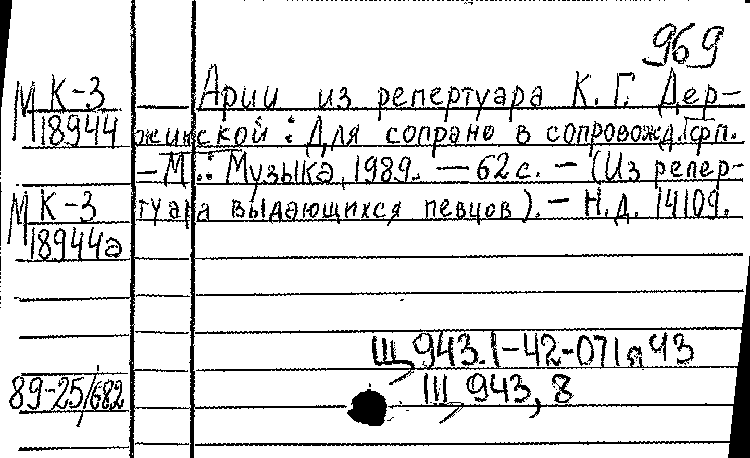 969
М К-3
18944
Арии из репертуара К. Г. Дер-
жинской : Для сопрано в сопровожд. фп.
– М.: Музыка, 1989. – 62 с. – (Из репер-
туара выдающихся певцов). – Н.д. 14109.
М К-3
18944а
Щ 943.1-42-071я43
Щ 943,8
89-25/682